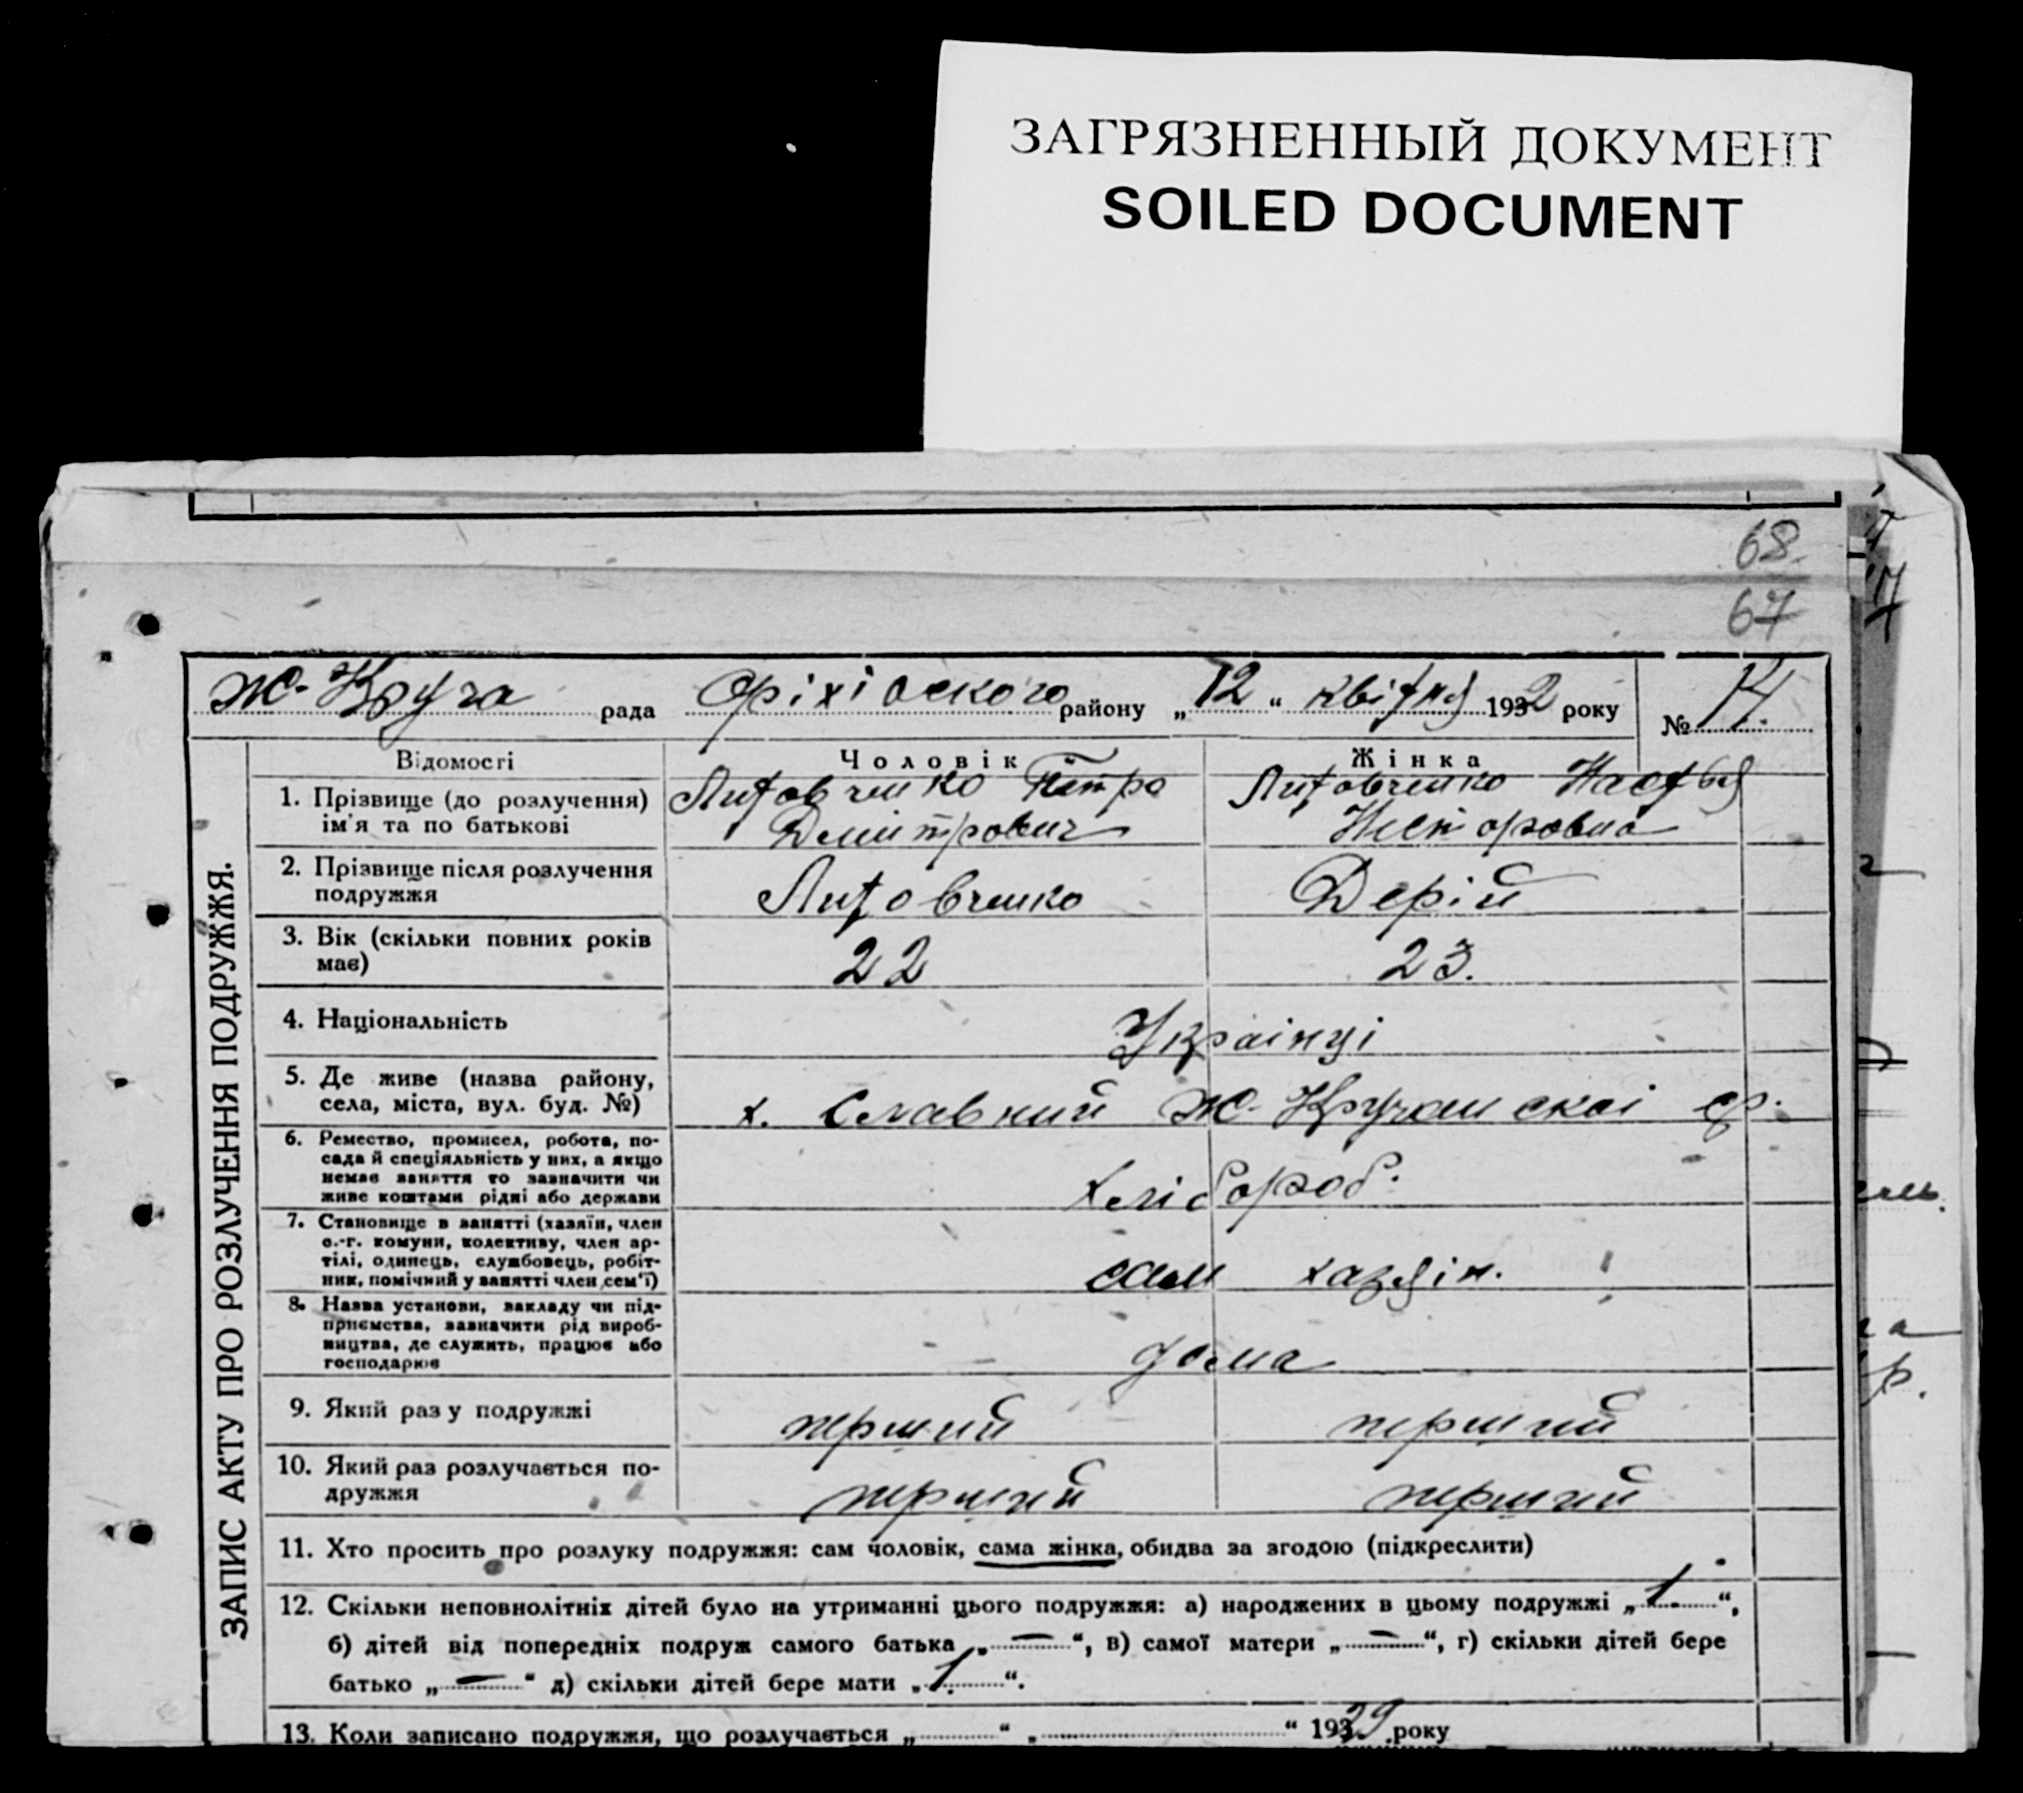 ЗАГРЯЗНЕННЫЙ ДОКУМЕНТ
SOILED DOCUMENT
68.
67
Ж-Круча рада Оріхівського району „12“ квітня 1932 року № 14.
ЗАПИС АКТУ ПРО РОЗЛУЧЕННЯ ПОДРУЖЖЯ.
Відомості Чоловік Жінка
1. Прізвище (до розлучення) ім'я та по батькові Литовченко Петро Литовченко Настья
Дмитрович Несторовна
2. Прізвище після розлучення подружжя Литовченко Дерій
3. Вік (скільки повних років має) 22 23.
4. Національність Українці
5. Де живе (назва району, села, міста, вул. буд. №) х. Славний Ж-Кручанскої ср.
6. Ремество, промисел, робота, по-
сада й спеціяльність у них, а якщо
немає заняття то зазначити чи
живе коштами рідні або держави хлібороб.
7. Становище в занятті (хазяїн, член
с.-г. комуни, колективу, член ар-
тілі, одинець, службовець, робіт-
ник, помічний у занятті член сем'ї) сам хазяін.
8. Назва установи, закладу чи під-
приємства, зазначити рід вироб-
ництва, де служить, працює або
господарює дома
9. Який раз у подружжі перший перший
10. Який раз розлучається по-
дружжя перший перший
11. Хто просить про розлуку подружжя: сам чоловік, сама жінка, обидва за згодою (підкреслити)
12. Скільки неповнолітніх дітей було на утриманні цього подружжя: а) народжених в цьому подружжі „1.“,
б) дітей від попередніх подруж самого батька „—“, в) самої матери „—“, г) скільки дітей бере
батько „—“ д) скільки дітей бере мати „1.“.
13. Коли записано подружжя, що розлучається „ “ „ “ 1929 року